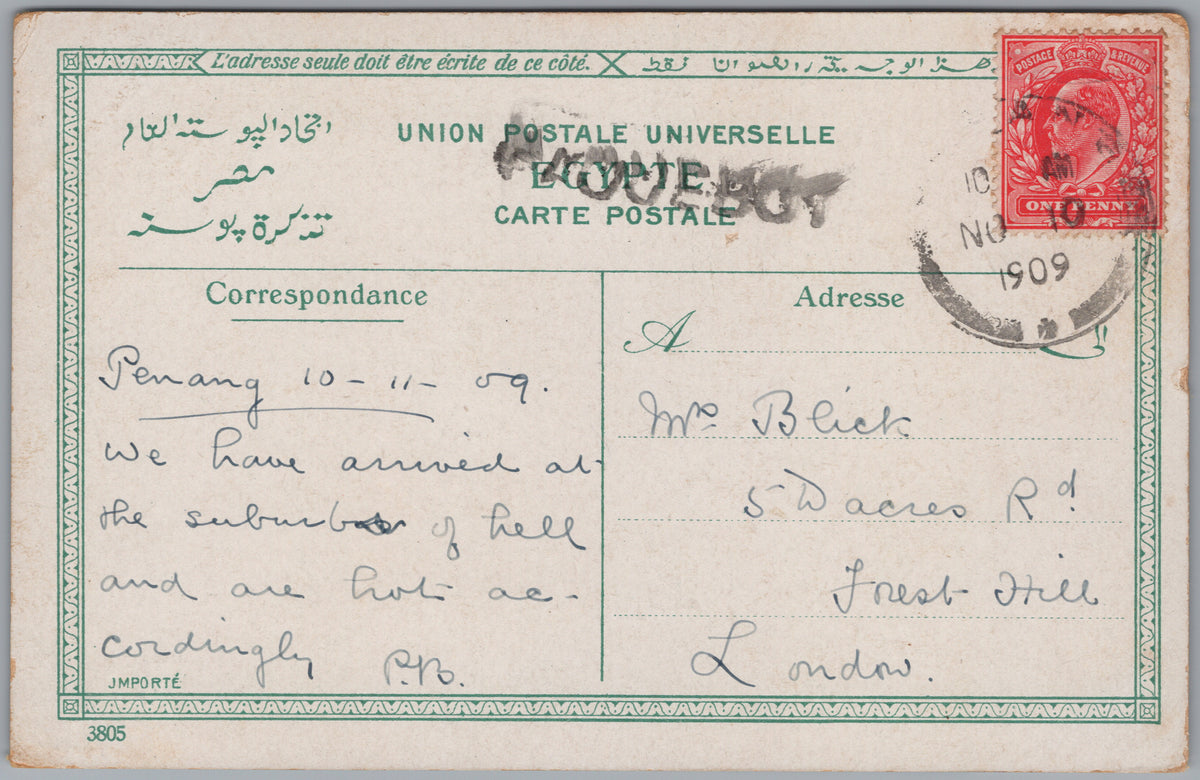 L'adresse seule doit être écrite de ce côté.
هذا الوجه يتقدر العنوان فقط
POSTAGE & REVENUE
ONE PENNY
اتحاد البوسته العام
UNION POSTALE UNIVERSELLE
PAQUEBOT
مصر
EGYPTE
تذكرة بوسته
CARTE POSTALE
10 AM
NO 10
1909
Correspondance
Adresse
A
الى
Penang 10-11-09.
We have arrived at
the suburbs of hell
and are hot ac-
cordingly P.B.
Mrs. Blick
5 Dacres Rd
Forest Hill
London.
JMPORTÉ
3805